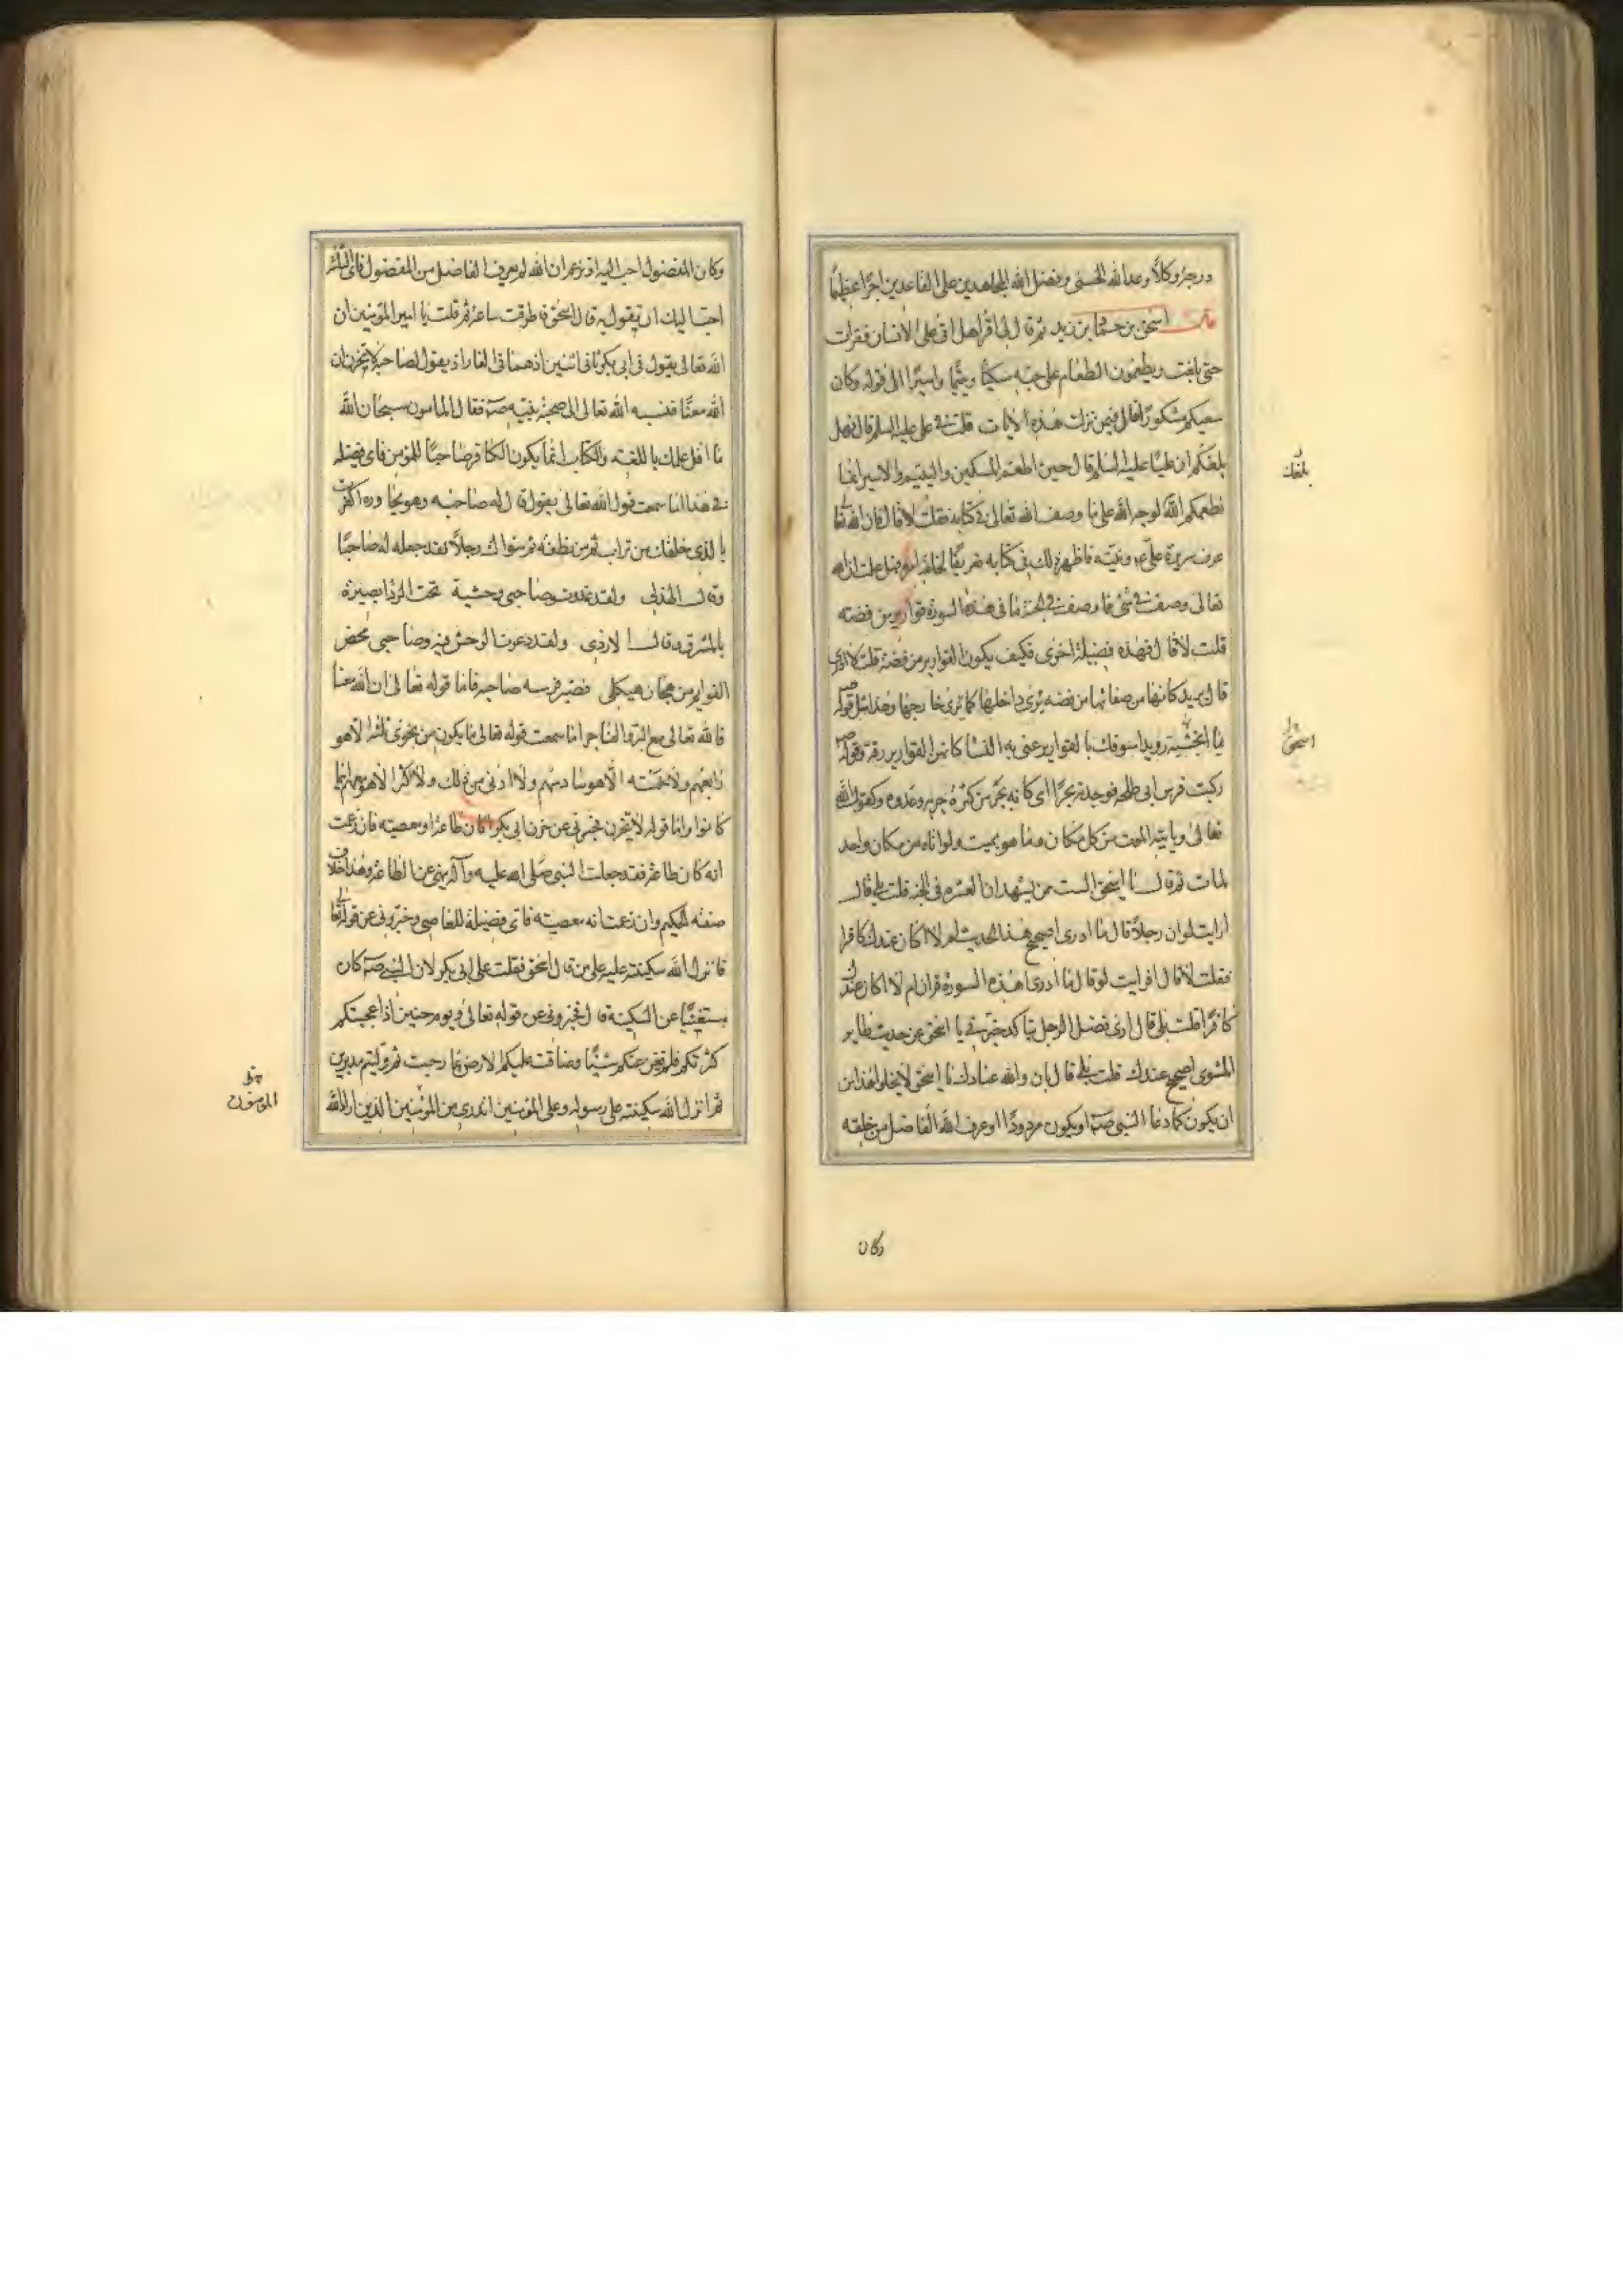 درجة وكلا وعد الله الحسنى وفضل الله المجاهدين على القاعدين اجرا عظيما
قال اسحق بن حماد بن زيد ثم قال لى اقرا هل اتى على الانسان فقرات
حتى بلغت ويطعمون الطعام على حبه مسكينا ويتيما واسيرا الى قوله وكان
سعيكم مشكورا فقال فيمن نزلت هذه الايات قلت فى على عليه السلم قال فهل
بلغكم ان عليا عليه السلم قال حين اطعم المسكين واليتيم والاسير انما
نطعمكم لوجه الله على ما وصف الله تعالى فى كتابه فقلت لا قال فان الله تعا
عرف سريرة على ع ونيته فاظهر ذلك فى كتابه تعريفا لخلقه امره فهل علمت ان الله
تعالى وصف فى شئ مما وصف فى الجنة ما فى هذه السورة قوارير من فضه
قلت لا قال فهذه فضيلة اخرى فكيف يكون القوارير من فضة قلت لا ادرى
قال يريد كانها من صفائها من فضه يرى داخلها كما يرى خارجها وهذا مثل قوله ص
يا انجشة رويدا سوقك بالقوارير عنى به النسا كانهن القوارير رقة وقوله ص
ركبت فرس ابى طلحه فوجدته بحرا اى كانه بحر من كثرة جريه وعدوه وكقول الله
تعالى وياتيه الموت من كل مكان وما هو بميت ولو اتاه من مكان واحد
لمات ثم قال يا اسحق الست ممن يشهد ان العشره فى الجنه قلت بلى قال
ارايت لو ان رجلا قال ما ادرى اصحيح هذا الحديث ام لا اكان عندك كافرا
فقلت لا قال افرايت لو قال ما ادرى هذه السورة قران ام لا اكان عندك
كافرا قلت بلى قال ارى فضل الرجل يتاكد خبرنى يا اسحق عن حديث طاير
المشوى اصحيح عندك قلت بلى قال بان والله عنادك يا اسحق لا يخلو هذا من
ان يكون كما دعا النبى ص او يكون مردودا او عرف الله الفاضل من خلقه
بلغك
اسحق
وكان
وكان المفضول احب اليه او تزعم ان الله لم يعرف الفاضل من المفضول فاى الثلث
احب اليك ان يقول به قال اسحق فاطرقت ساعة ثم قلت يا امير المؤمنين ان
الله تعالى يقول فى ابى بكر ثانى اثنين اذ هما فى الغار اذ يقول لصاحبه لا تحزن ان
الله معنا فنسبه الله تعالى الى صحبة نبيه ص فقال المامون سبحان الله
ما اقل علمك باللغه والكتاب انما يكون الكافر صاحبا للمؤمن فاى فضيله
فى هذا اما سمعت قول الله تعالى يقول قال له صاحبه وهو يحاوره اكفرت
بالذى خلقك من تراب ثم من نطفه ثم سواك رجلا فقد جعله له صاحبا
وقال الهذلى ولقد غدوت وصاحبى وحشية تحت الردا بصيرة
بالمشرق وقال الازدى ولقد دعوت الوحش فيه وصاحبى محض
القوايم من هجان هيكلى فصير فرسه صاحبه فاما قوله تعالى ان الله معنا
فالله تعالى مع البر والفاجر اما سمعت قوله تعالى ما يكون من نجوى ثلثة الا هو
رابعهم ولا خمسه الا هو سادسهم ولا ادنى من ذلك ولا اكثر الا هو معهم اينما
كانوا واما قوله لا تحزن فخبرنى عن حزن ابى بكر اكان طاعة او معصيه فان زعمت
انه كان طاعة فقد جعلت النبى صلى الله عليه وآله ينهى عن الطاعة وهذا خلاف
صفه الحكيم وان زعمت انه معصيته فاى فضيلة للعاصى وخبرونى عن قوله تعا
فانزل الله سكينته عليه على من قال اسحق فقلت على ابى بكر لان النبى ص كان
مستغنيا عن السكينة قال فخبرونى عن قوله تعالى ويوم حنين اذ اعجبتكم
كثرتكم فلم تغن عنكم شيئا وضاقت عليكم الارض بما رحبت ثم وليتم مدبرين
ثم انزل الله سكينته على رسوله وعلى المؤمنين اتدرى من المؤمنين الذين اراد الله
المؤمنون